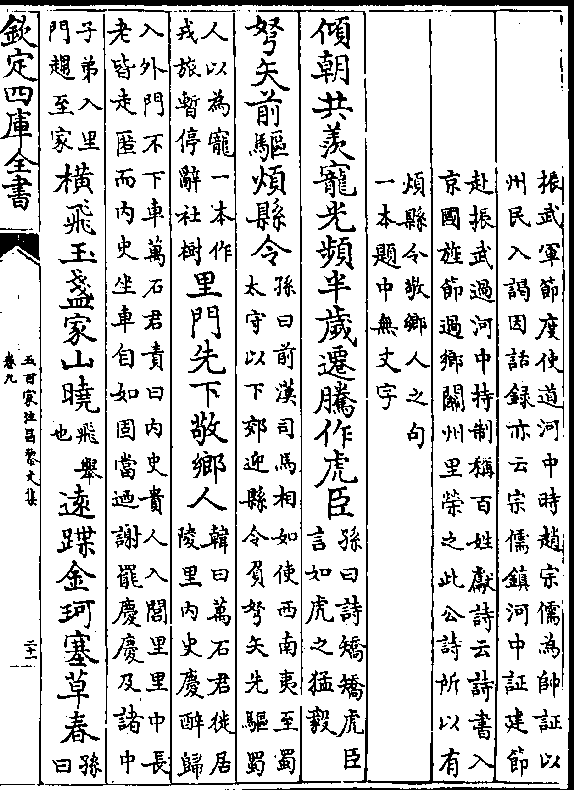 振武軍節度使道河中時趙宗儒為帥証以
州民入謁因話録亦云宗儒鎮河中証建節
赴振武過河中持制稱百姓獻詩云詩書入
京國旌節過鄉關州里榮之此公詩所以有
煩縣令敬鄉人之句
一本題中無丈字
傾朝共羨寵光頻半歲遷騰作虎臣孫曰詩矯矯虎臣
言如虎之猛毅
弩矢前驅煩縣令孫曰前漢司馬相如使西南夷至蜀
太守以下郊迎縣令負弩矢先驅蜀
人以為寵一本作
戎旅暫停辭社樹里門先下敬鄉人韓曰萬石君徙居
陵里内史慶醉歸
入外門不下車萬石君責曰内史貴人入閭里里中長
老皆走匿而内史坐車自如固當迺謝罷慶慶及諸中
子弟入里
門趨至家橫飛玉盞家山曉飛舉
也逺蹀金珂塞草春孫
曰
欽定四庫全書
五百家注昌黎文集
卷九
二十一